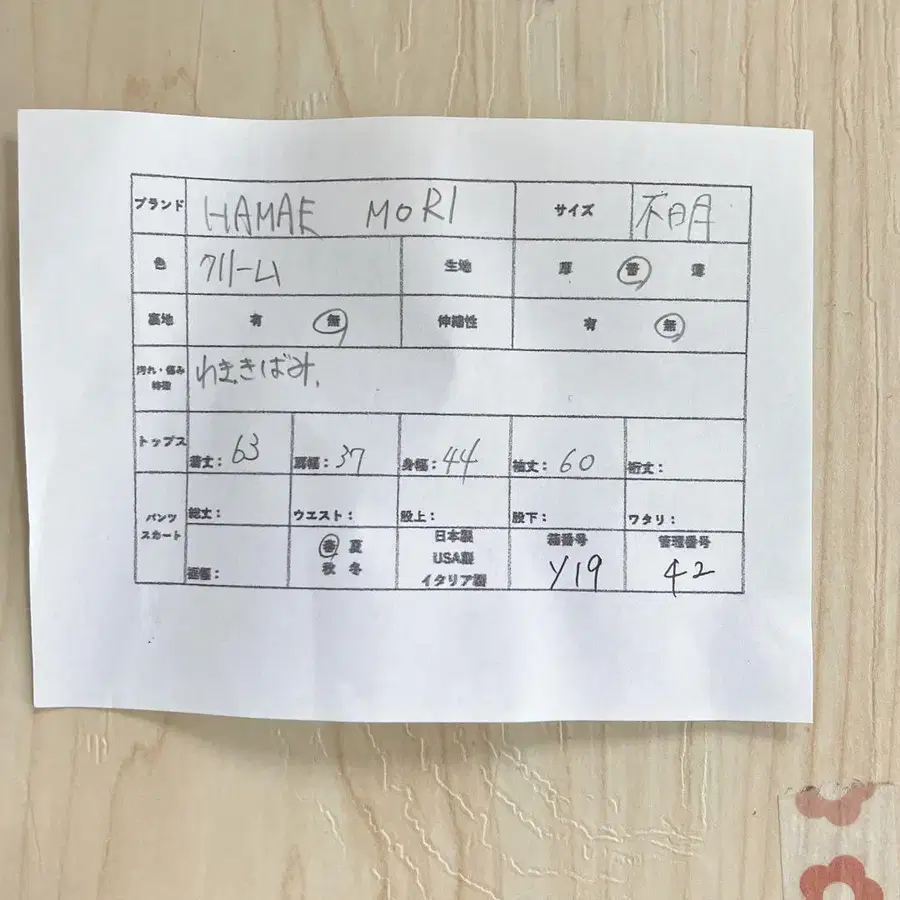 ブランド HAMAE MORI サイズ 不明
色 クリーム 生地 厚 普 薄
裏地 有 無 伸縮性 有 無
汚れ・傷み
特徴 わききばみ.
トップス 着丈: 63 肩幅: 37 身幅: 44 袖丈: 60 裄丈:
パンツ
スカート 総丈: ウエスト: 股上: 股下: ワタリ:
裾幅: 春 夏
秋 冬 日本製
USA製
イタリア製 箱番号
Y19 管理番号
42